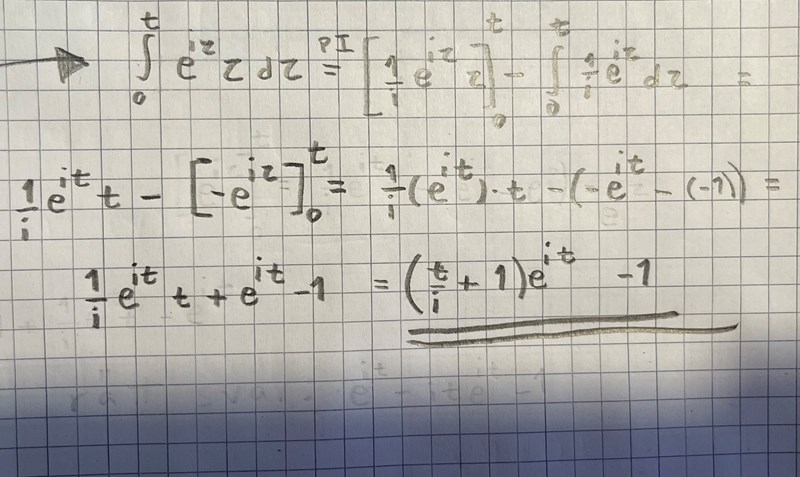 ∫₀ᵗ e^{iz} z dz =^{PI} [1/i e^{iz} z]₀ᵗ - ∫₀ᵗ 1/i e^{iz} dz =
1/i e^{it} t - [-e^{iz}]₀ᵗ = 1/i (e^{it}) · t - (-e^{it} - (-1)) =
1/i e^{it} t + e^{it} - 1 = (t/i + 1) e^{it} - 1